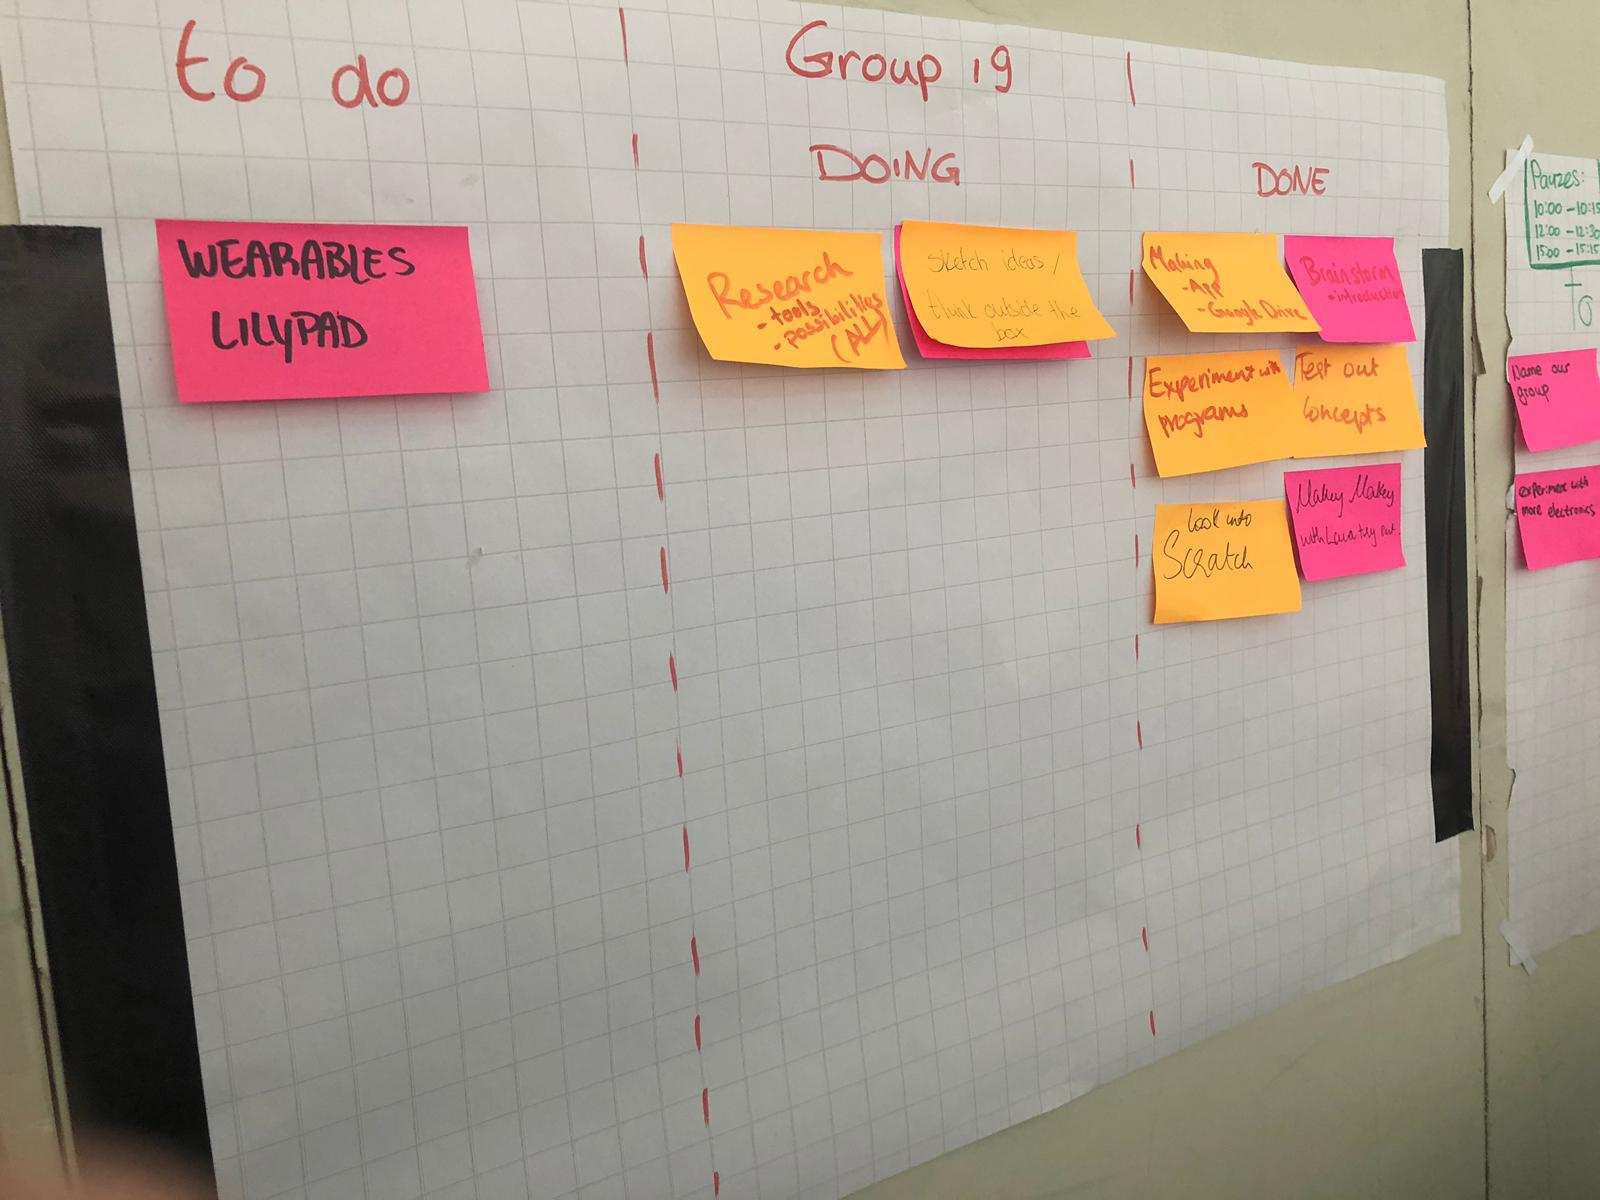 to do
Group 19
DOING
DONE
WEARABLES
LILYPAD
Research
- tools
- possibilities
(ALL)
Sketch ideas /
think outside the
box
Making
- App
- Google Drive
Brainstorm
- introduction
Experiment with
programs
Test out
Concepts
Look into
Scratch
Makey Makey
with try out.
Pauzes:
10:00 - 10:15
12:00 - 12:30
15:00 - 15:15
TO
Name our
group
experiment with
more electronics